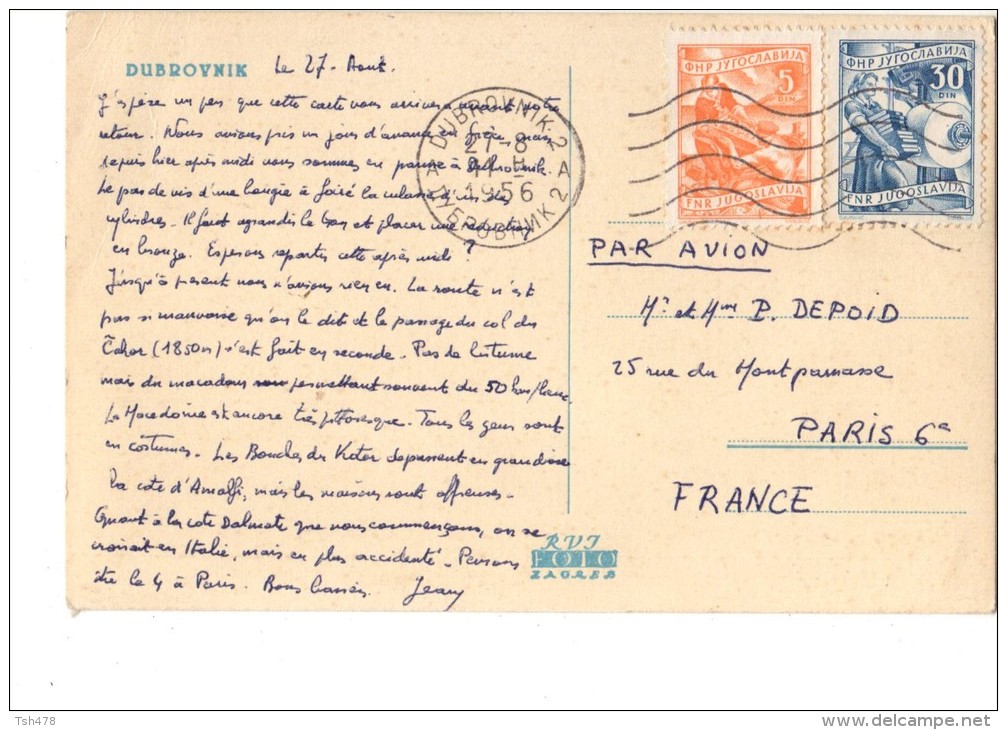 DUBROVNIK
Le 27 - Août.
J'espère un peu que cette carte vous arrivera avant votre
retour. Nous avions pris un jour d'avance en Grèce, mais
depuis hier après midi nous sommes en panne à Dubrovnik.
Le pas de vis d'une bougie a foiré la culasse à vis des
cylindres. Il faut agrandir le trou et placer une réduction
en bronze. Espérons repartir cette après midi ?
Jusqu'à présent nous n'avions rien eu. La route n'est
pas si mauvaise qu'on le dit et le passage du col du
Čakor (1850 m) s'est fait en seconde. Pas de bitume
mais du macadam permettant souvent du 50 km/heure.
La Macédoine est encore très pittoresque. Tous les gens sont
en costumes. Les Bouches du Kotor dépassent en grandiose
la côte d'Amalfi, mais les maisons sont affreuses.
Quant à la côte Dalmate que nous commençons, on se
croirait en Italie, mais en plus accidenté. Pensons
être le 4 à Paris. Bons baisers. Jean
DUBROVNIK 2
27-8
24 H
1956
A A
ДУБРОВНИК 2
ФНР ЈУГОСЛАВИЈА
5
DIN
FNR JUGOSLAVIJA
ФНР ЈУГОСЛАВИЈА
30
DIN
FNR JUGOSLAVIJA
PAR AVION
Mr et Mme P. DEPOID
25 rue du Montparnasse
PARIS 6e
FRANCE
RVI
FOTO
ZAGREB
Tsh478
www.delcampe.net